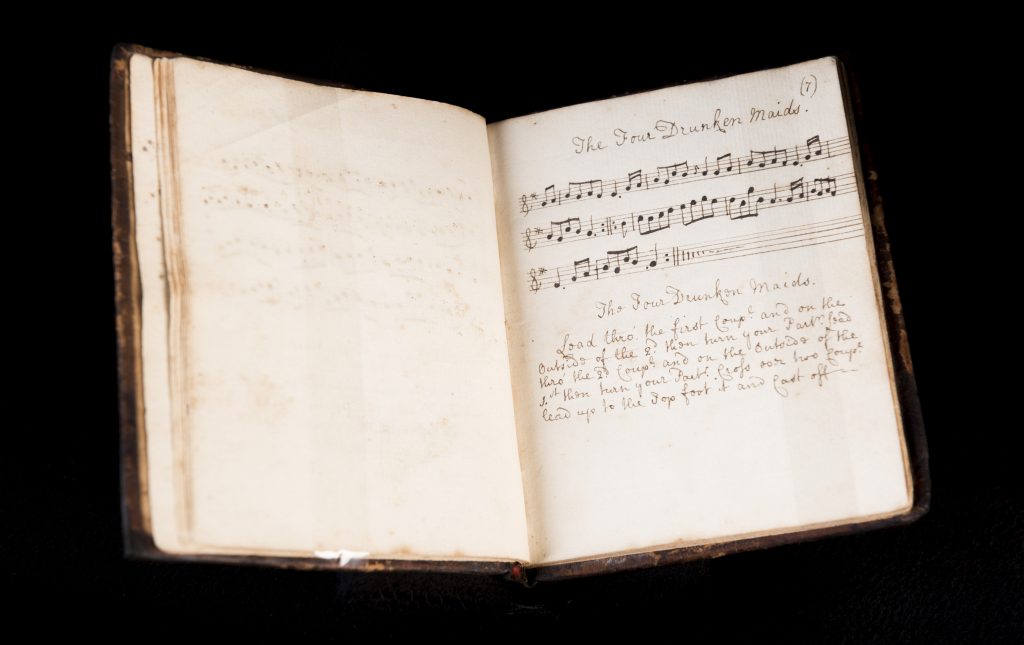 (7)
The Four Drunken Maids.
The Four Drunken Maids.
Lead thrô the first Coup.ᵉ and on the
Outside of the 2.ᵈ then turn your Part.ʳ lead
thrô the 2.ᵈ Coup.ᵉ and on the Outside of the
1.ˢᵗ then turn your Part.ʳ Cross over two Coup.ᵉ
lead up to the Top foot it and Cast off